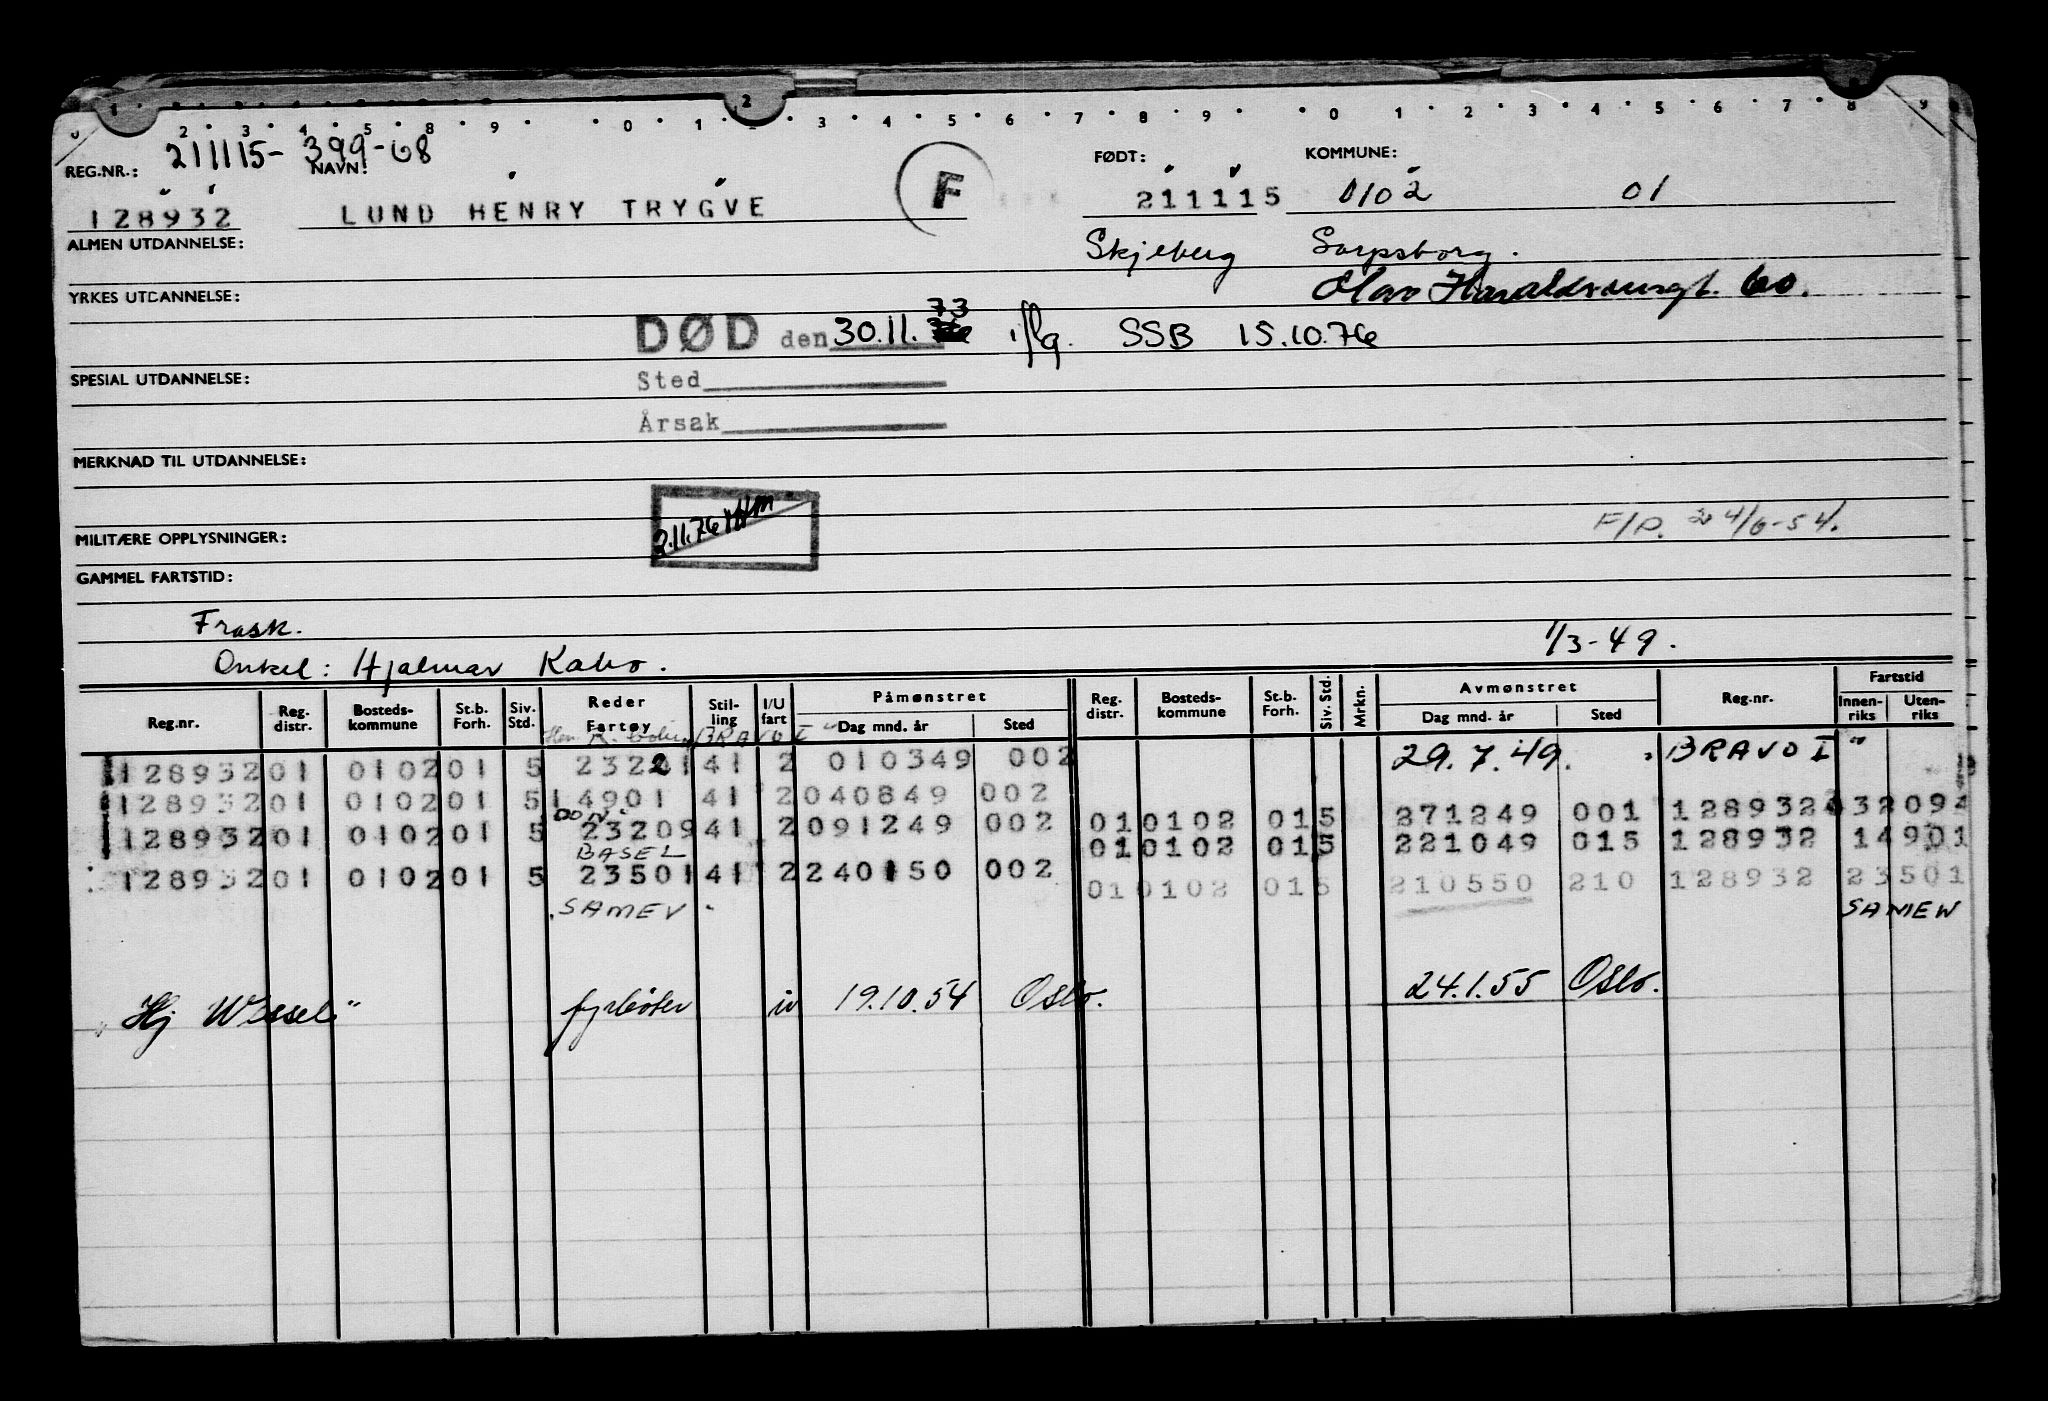 1 2 3 4 5 8 9 0 1 2 3 4 5 6 7 8 9 0 1 2 3 4 5 6 7 8 9
REG.NR.: 211115- 399-08
NAVN: FØDT: KOMMUNE:
128932 LUND HENRY TRYGVE F 211115 0102 01
ALMEN UTDANNELSE: Skjeberg Sarpsborg.
YRKES UTDANNELSE: 60.
DØD den 30.11. 73 iflg. SSB 15.10.76
SPESIAL UTDANNELSE: Sted
Årsak
MERKNAD TIL UTDANNELSE:
2.11.76
MILITÆRE OPPLYSNINGER: F/P. 24/6-54.
GAMMEL FARTSTID:
Frask. 1/3-49.
Onkel: Hjalmar Kabo.
Reg.nr. Reg. distr. Bosteds- kommune St.b. Forh. Siv. Std. Reder Fartøy Stil- ling I/U fart Påmønstret Dag mnd. år Sted Reg. distr. Bosteds- kommune St.b. Forh. Siv. Std. Mrkn. Avmønstret Dag mnd. år Sted Reg.nr. Fartstid Innen- riks Uten- riks
BRAVO I
128932 01 0102 01 5 23221 41 2 010349 002 29.7.49. "BRAVO I"
128932 01 0102 01 5 14901 41 2 040849 002 01 0102 01 5 271249 001 128932 32094
DON.
128932 01 0102 01 5 23209 41 2 091249 002 01 0102 01 5 221049 015 128932 14901
BASEL
128932 01 0102 01 5 23501 41 2 240150 002 01 0102 01 5 210550 210 128932 23501
"SAMEV" SAMEW
"Hj Wessel" fyrbøter iu 19.10.54 Oslo. 24.1.55 Oslo.